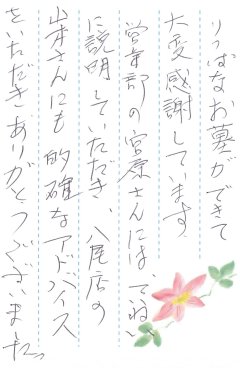 りっぱなお墓ができて
大変感謝しています。
営業部の宮原さんには、ていねい
に説明していただき、八尾店の
山本さんにも的確なアドバイス
をいただきありがとうございました。